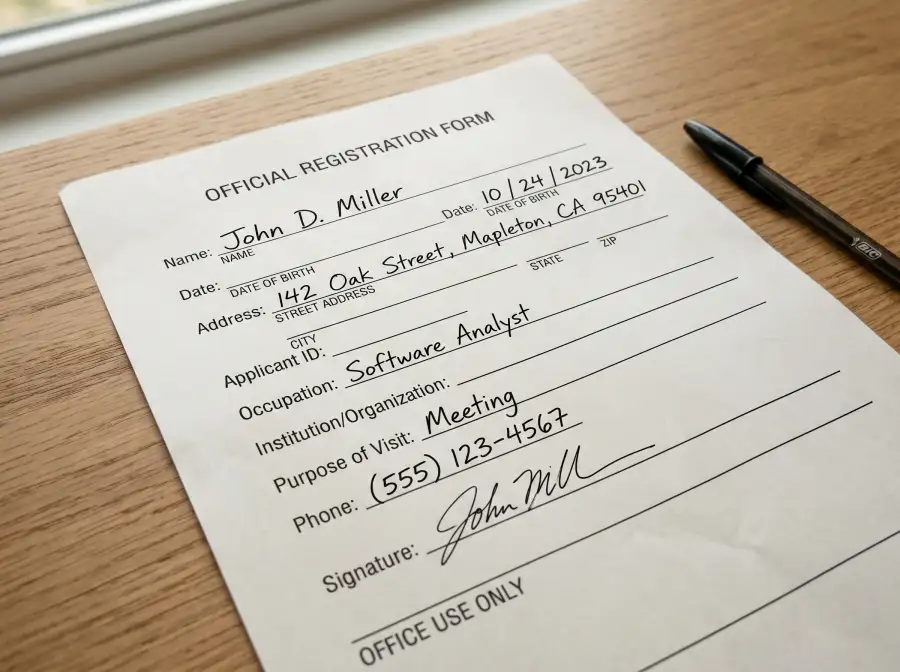 OFFICIAL REGISTRATION FORM
Name: John D. Miller Date: 10/24/2023
NAME DATE OF BIRTH
Date:
DATE OF BIRTH
Address: 142 Oak Street, Mapleton, CA 95401
STREET ADDRESS
CITY STATE ZIP
Applicant ID:
Occupation: Software Analyst
Institution/Organization:
Purpose of Visit: Meeting
Phone: (555) 123-4567
Signature: John Mill
OFFICE USE ONLY
BIC